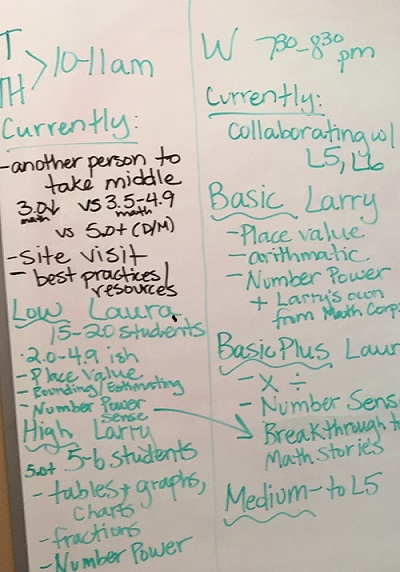 T
TH > 10-11am
Currently:
-another person to
take middle
3.0↓ vs 3.5-4.9
math math
vs 5.0+ (D/M)
-site visit
- best practices/
resources
Low Laura
15-20 students
·2.0-4.9 ish
-Place Value
-Rounding/Estimating
-Number Power
sense
High Larry
5.0+ 5-6 students
-tables + graphs,
charts
-fractions
-Number Power
W 7:30-8:30
pm
Currently:
collaborating w/
L5, L6
Basic Larry
-Place value
-arithmatic
-Number Power
+ Larry's own
from Math Corp
Basic Plus Laur
-X ÷
- Number Sens
Breakthrough to
Math Stories
Medium-to L5